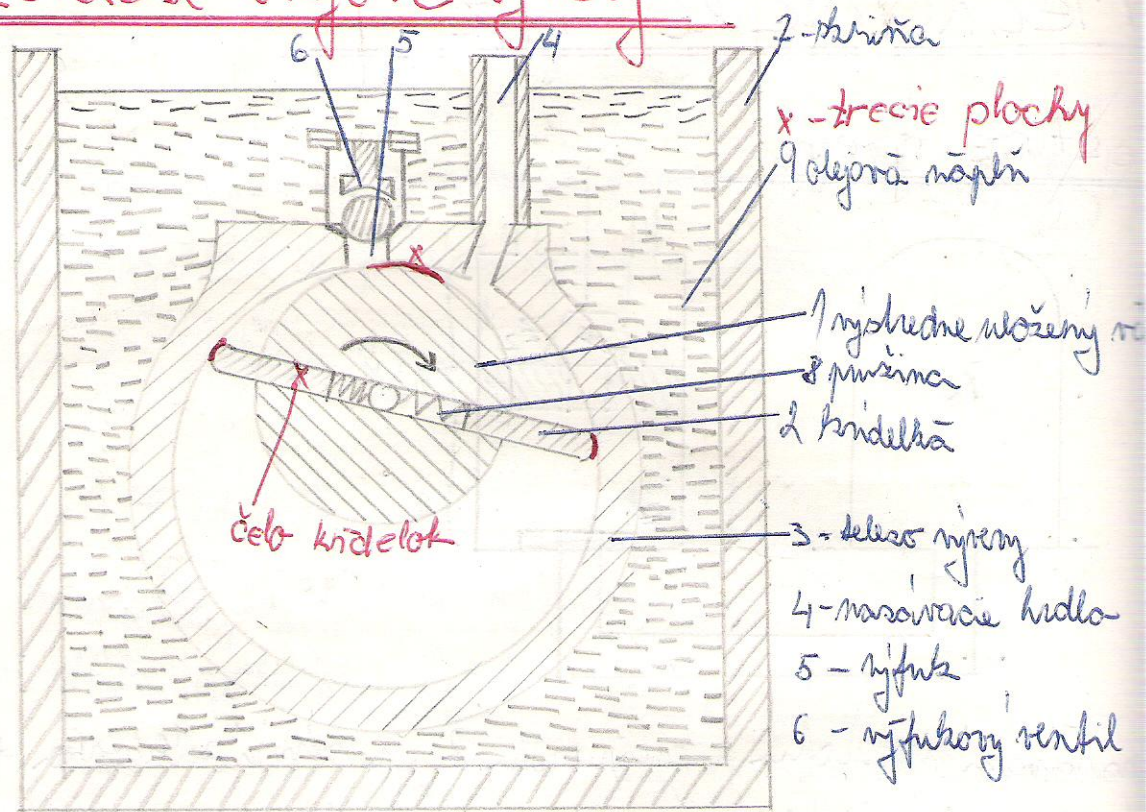 6 5 4
7-skriňa
x-trecie plochy
9 olejová náplň
1 výstredne uložený
8 pružina
2 krídelká
x
x
čelo krídelok
3-teleso vývevy
4-nasávacie hrdlo
5 - výfuk
6 - výfukový ventil